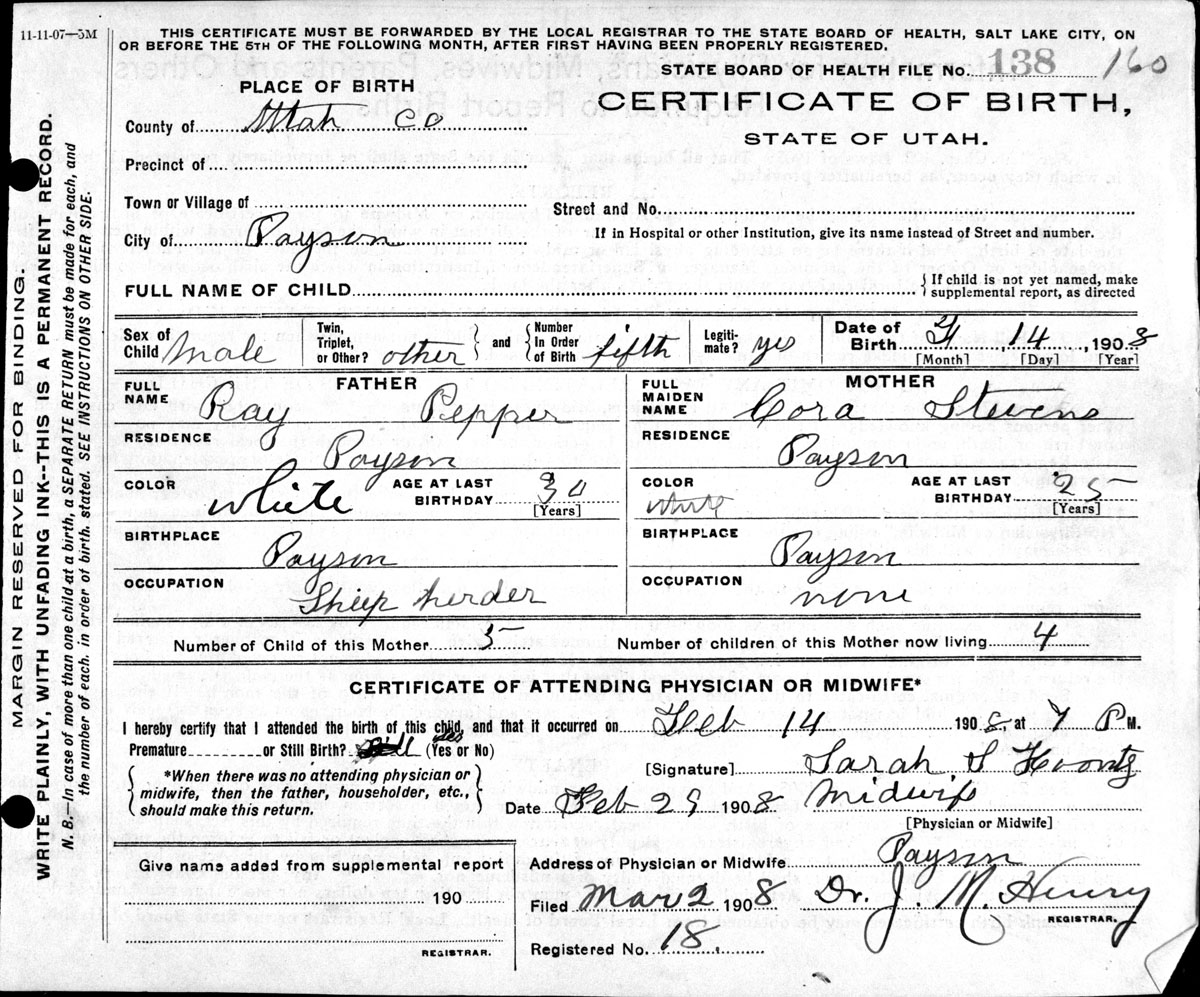 11-11-07—5M
THIS CERTIFICATE MUST BE FORWARDED BY THE LOCAL REGISTRAR TO THE STATE BOARD OF HEALTH, SALT LAKE CITY, ON
OR BEFORE THE 5TH OF THE FOLLOWING MONTH, AFTER FIRST HAVING BEEN PROPERLY REGISTERED.
STATE BOARD OF HEALTH FILE No. 138 160
PLACE OF BIRTH
CERTIFICATE OF BIRTH,
STATE OF UTAH.
County of Utah Co
Precinct of
Town or Village of
Street and No.
City of Payson
If in Hospital or other Institution, give its name instead of Street and number.
FULL NAME OF CHILD
{ If child is not yet named, make
supplemental report, as directed
Sex of Child Male
Twin, Triplet, or Other? other } and { Number In Order of Birth fifth
Legitimate? yes
Date of Birth 14, 1908
[Month] [Day] [Year]
FATHER
FULL NAME Ray Pepper
RESIDENCE Payson
COLOR White
AGE AT LAST BIRTHDAY 30 [Years]
BIRTHPLACE Payson
OCCUPATION Sheep herder
MOTHER
FULL MAIDEN NAME Cora Stevens
RESIDENCE Payson
COLOR white
AGE AT LAST BIRTHDAY 25 [Years]
BIRTHPLACE Payson
OCCUPATION none
Number of Child of this Mother 5
Number of children of this Mother now living 4
CERTIFICATE OF ATTENDING PHYSICIAN OR MIDWIFE*
I hereby certify that I attended the birth of this child, and that it occurred on Feb 14 1908 at P M.
Premature or Still Birth? yes (Yes or No)
{ *When there was no attending physician or
midwife, then the father, householder, etc.,
should make this return. }
[Signature] Sarah S Koontz
Date Feb 29 1908 Midwife
[Physician or Midwife]
Given name added from supplemental report
190
REGISTRAR.
Address of Physician or Midwife Payson
Filed Mar 2 1908 Dr. J. M. Henry
REGISTRAR.
Registered No. 18.
MARGIN RESERVED FOR BINDING.
WRITE PLAINLY, WITH UNFADING INK--THIS IS A PERMANENT RECORD.
N. B.—In case of more than one child at a birth, a SEPARATE RETURN must be made for each, and
the number of each, in order of birth, stated. SEE INSTRUCTIONS ON OTHER SIDE.